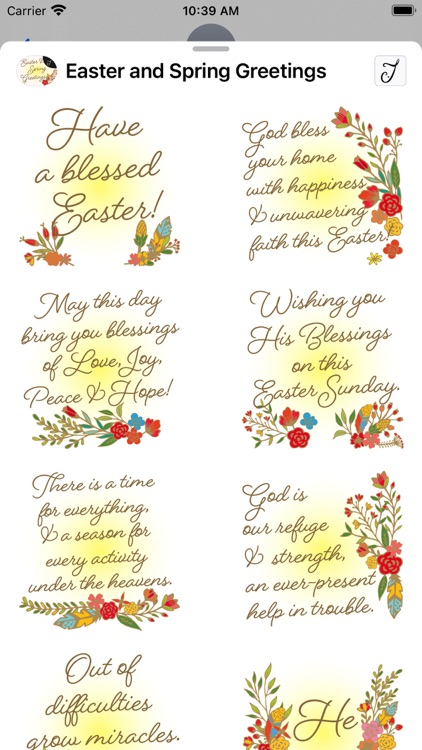 Carrier 10:39 AM
Easter and Spring Greetings
Have
a blessed
Easter!
God bless
your home
with happiness
& unwavering
faith this Easter!
May this day
bring you blessings
of Love, Joy,
Peace & Hope!
Wishing you
His Blessings
on this
Easter Sunday.
There is a time
for everything,
& a season for
every activity
under the heavens.
God is
our refuge
& strength,
an ever-present
help in trouble.
Out of
difficulties
grow miracles.
He